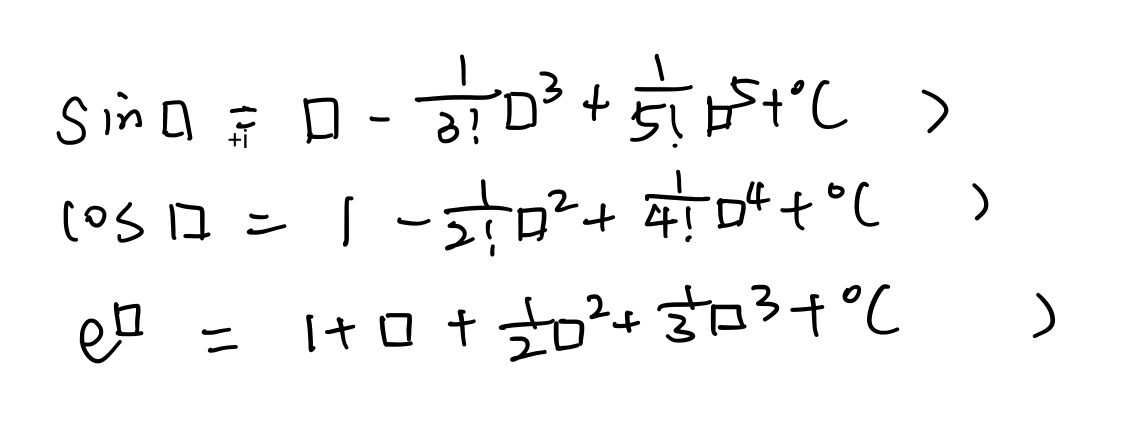 sin□ = □ - 1/3! □³ + 1/5! □⁵ + °( )
+i
cos□ = 1 - 1/2! □² + 1/4! □⁴ + °( )
e^□ = 1 + □ + 1/2 □² + 1/3 □³ + °( )